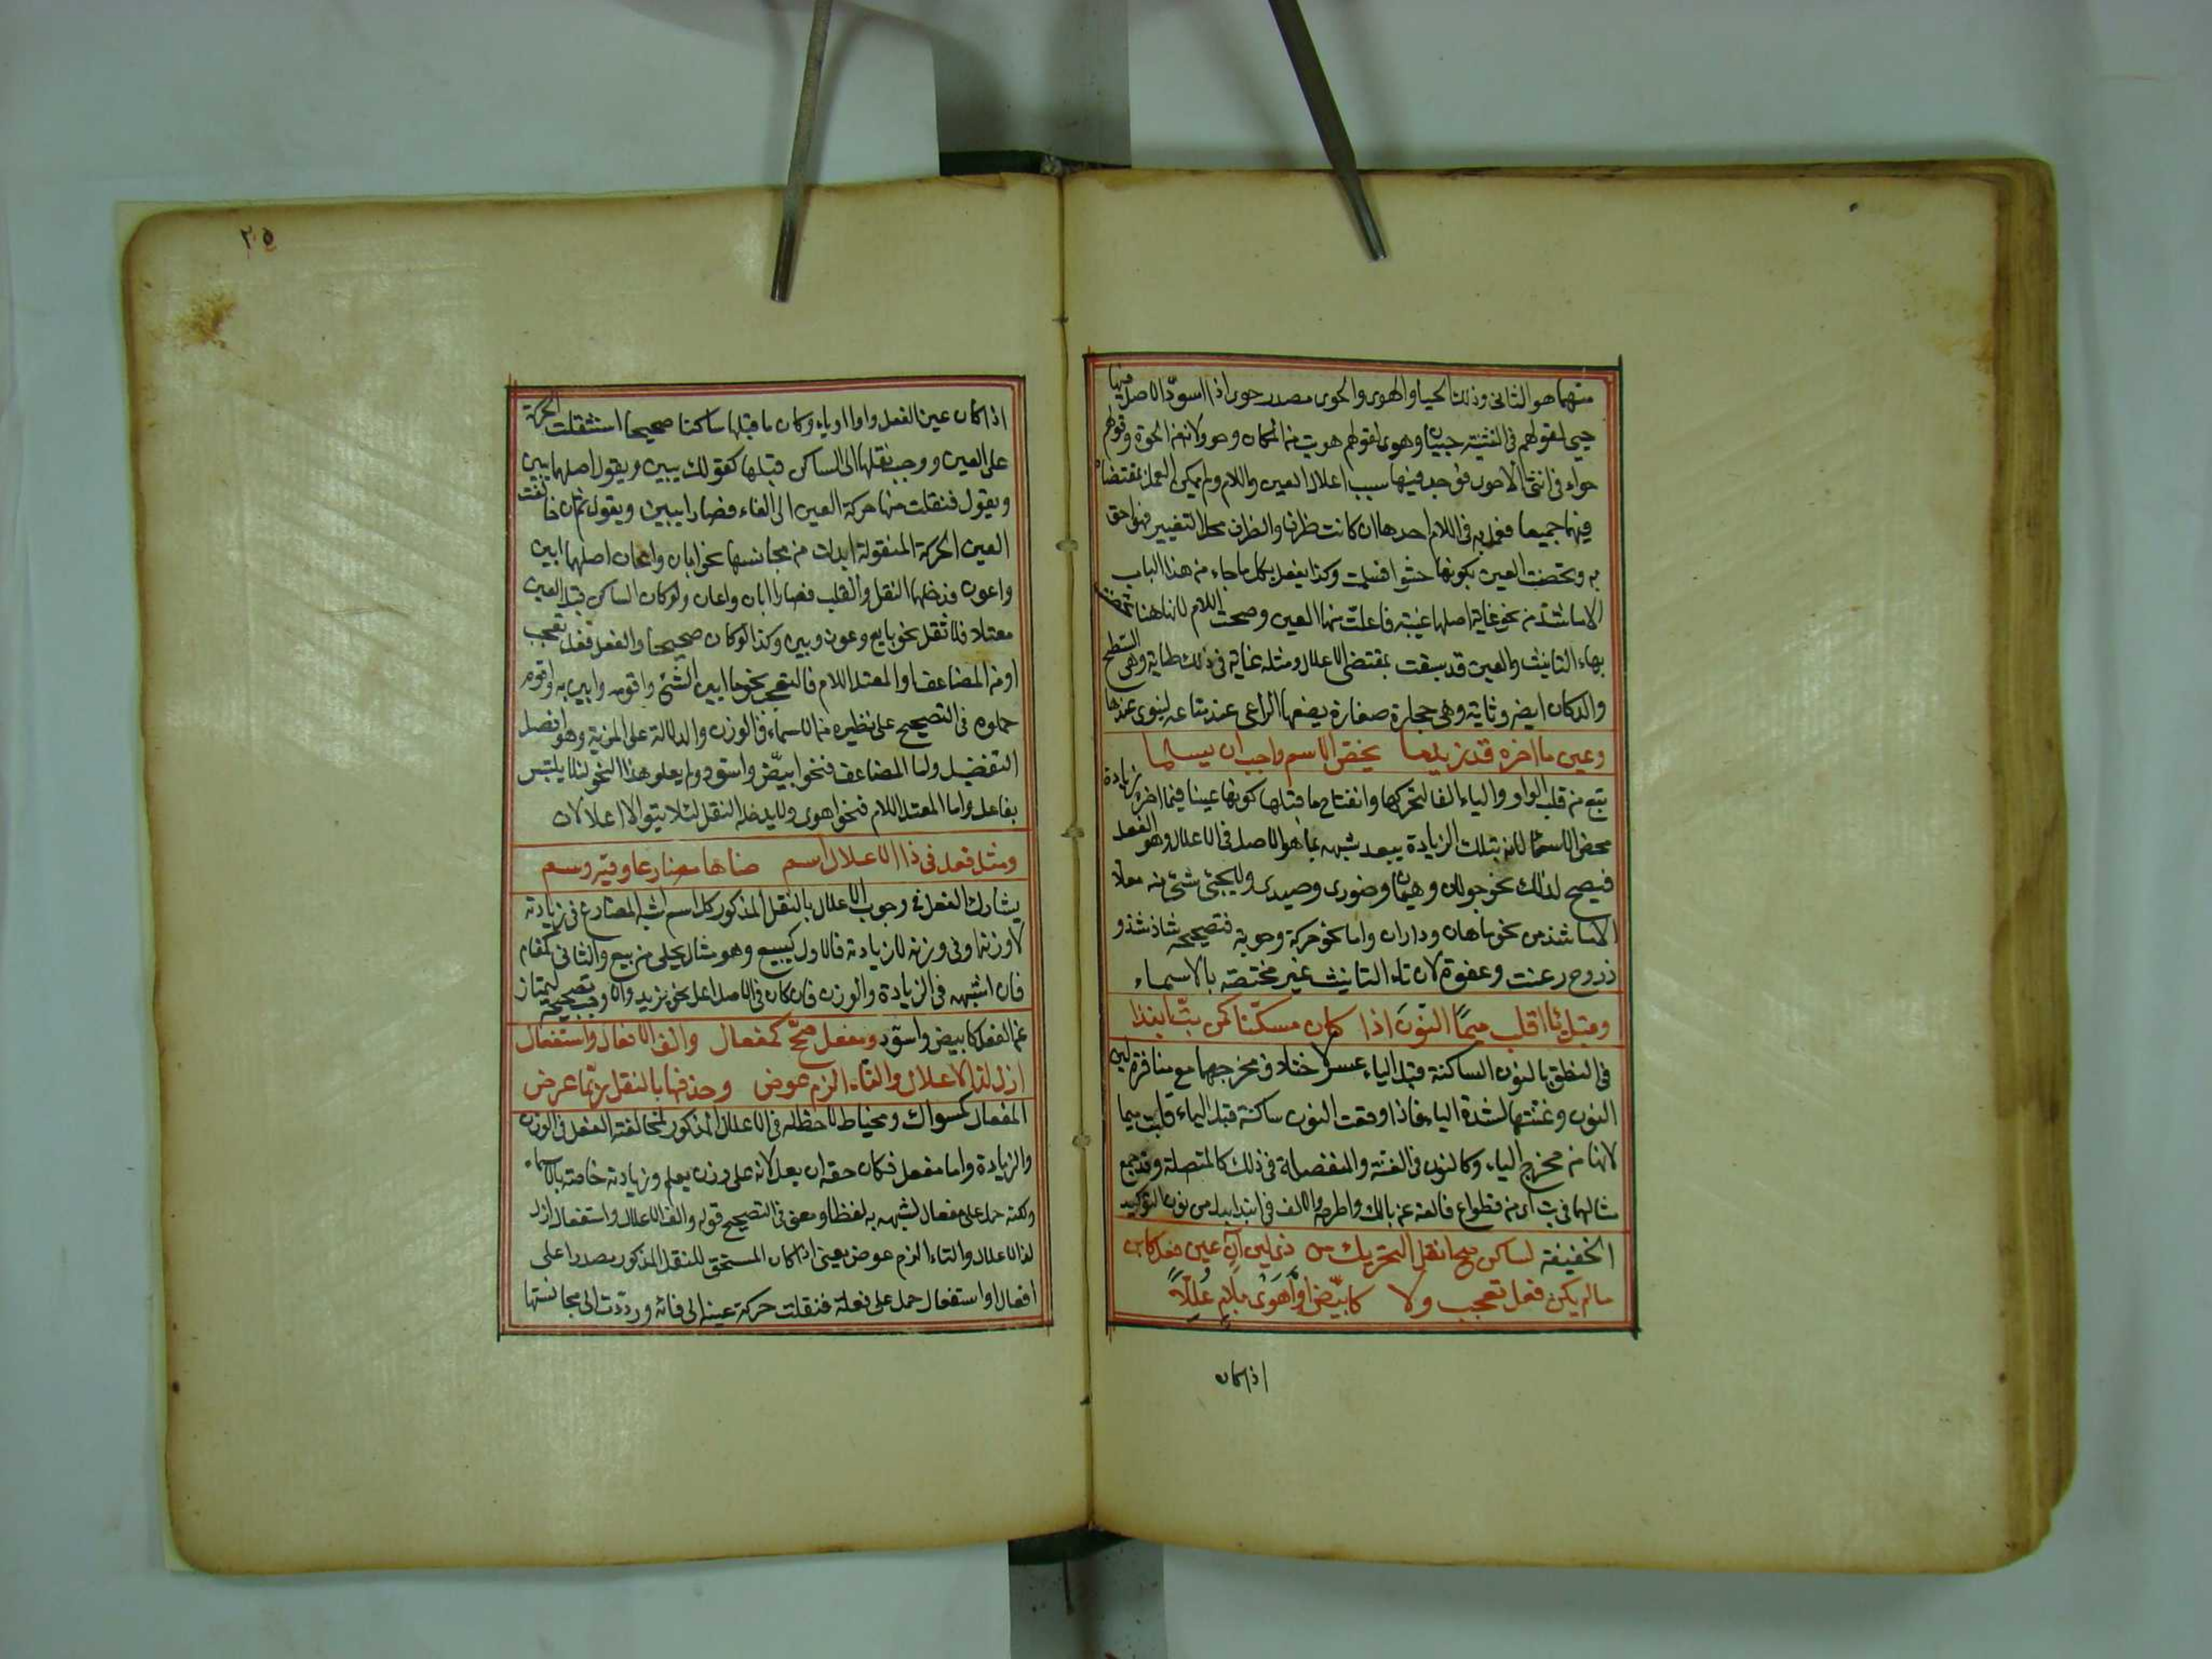 منهما هو الثانى وذلك الحيا والهوى والحوى مصدر حوى اذا اسودّ الاصل فيها
حيى لقولهم فى التثنية حييان وهوى لقولهم هويت من المكان وحوو لانه من الحوة وقولهم
حواء فى انثى الاحوى فوجد فيها سبب اعلال العين واللام ولم يمكن العمل بمقتضاه
فيهما جميعا فعمل به فى اللام احدها ان كانت طرفا والطرف محل التغيير فهو احق
به وتحصنت العين بكونها حشوا فسلمت وكذا يفعل بكل ما جاء من هذا الباب
الا ما شذ من نحو غاية اصلها غيية فاعلت منها العين وصحت اللام لانها هنا تحصنت
بهاء التانيث والعين قد سبقت بمقتضى الاعلال ومثله غاية فى ذلك طاية وهى السطح
والدكان ايضا وثاية وهى حجارة صغارة يضعها الراعى عند متاعه ليثوى عندها
وعين ما اخره قد زيد ما يخص الاسم واجب ان يسلما
يمنع من قلب الواو والياء الفا لتحركها وانفتاح ما قبلها كونها عينا فيما اخره زيادة
تخص الاسما لانه بتلك الزيادة يبعد شبهه بما هو الاصل فى الاعلال وهو الفعل
فيصح لذلك نحو جولان وهيمان وصورى وحيدى ولا يجئ شئ منه معلا
الا ما شذ من نحو ماهان وداران واما نحو حركة وحوبة فتصحيحه شاذ شذو
ذ روح رعنت وعفوة لان تاء التانيث غير مختصة بالاسماء
وقبل با اقلب ميمًا النونَ اذا كان مسكّنا كمن بتّ انبذا
فى النطق بالنون الساكنة قبل الباء عسر لاختلاف مخرجهما مع منافرة لين
النون وغنتها لشدة الباء فاذا وقعت النون ساكنة قبل الباء قلبت ميما
لانها من مخرج الباء وكالنون فى الغنة والمنفصلة فى ذلك كالمتصلة وقد جمع
مثالهما فى بت اى من قطوا ع فالعنه عن بالك واطرحه والالف فى انبذا بدل من نون التوكيد
الخفيفة لساكن صح انقل التحريك من ذى لين آت عين فعل كابن
ما لم يكن فعل تعجب ولا كابيّض او اَهوَى بلام عُلِّلاً
اذا كان
٢٥
اذا كان عين الفعل واوا او ياء وكان ما قبلها ساكنا صحيحا استثقلت الحركة
على العين ووجب نقلها الى الساكن قبلها كقولك يبين ويقول اصلهما يبين
ويقول فنقلت منها حركة العين الى الفاء فصار يبين ويقول ثم ان خالفت
العين الحركة المنقولة ابدلت من مجانسها نحو ابان واعان اصلهما ابين
واعون فدخلهما النقل والقلب فصارا ابان واعان ولو كان الساكن قبل العين
معتلا فلا نقل نحو بايع وعون وبين وكذا لو كان صحيحا والفعل فعل تعجب
او من المضاعف او المعتل اللام فالتعجب نحو ما ابين الشئ واقومه وابين به واقوم
حملوه فى التصحيح على نظيره من الاسماء فى الوزن والدلالة على المزية وهو افعل
التفضيل واما المضاعف فنحو ابيضّ واسودّ ولم يعلوا هذا النحو لئلا يلتبس
بفاعل واما المعتل اللام فنحو اهوى ولا يدخله النقل لئلا يتوالا اعلالان
ومثل فعل فى ذا الاعلال اسم ضاها مضارعا وفيه وسم
يشارك الفعل فى وجوب الاعلال بالنقل المذكور كل اسم اشبه المضارع فى زيادته
لا وزنه او فى وزنه لا زيادته فالاول كبيبع وهو مثال تحلى من بيع والثانى كمقام
فان اشبهه فى الزيادة والوزن فان كان فى الاصل اعل نحو يزيد والا وجب تصحيحه ليمتاز
عن الفعل كابيض واسود ومفعل صحّح كمفعال والف الافعال واستفعال
ازل لذا الاعلال والتاء الزم عوض وحذفها بالنقل ربّما عرض
المفعال كمسواك ومخياط لا حظ له فى الاعلال المذكور لمخالفة الفعل فى الوزن
والزيادة واما مفعل فكان حقه ان يعل لانه على وزن يعلم وزيادته خاصة بالاسماء
ولكنه حمل على مفعال لشبهه به لفظا ومعنى فى التصحيح قوله والف الافعال واستفعال ازل
لذا الاعلال والتاء الزم عوض يعنى اذا كان المستحق للنقل المذكور مصدرا على
افعال او استفعال حمل على فعله فنقلت حركة عينه الى فائه وردّت الى مجانستها